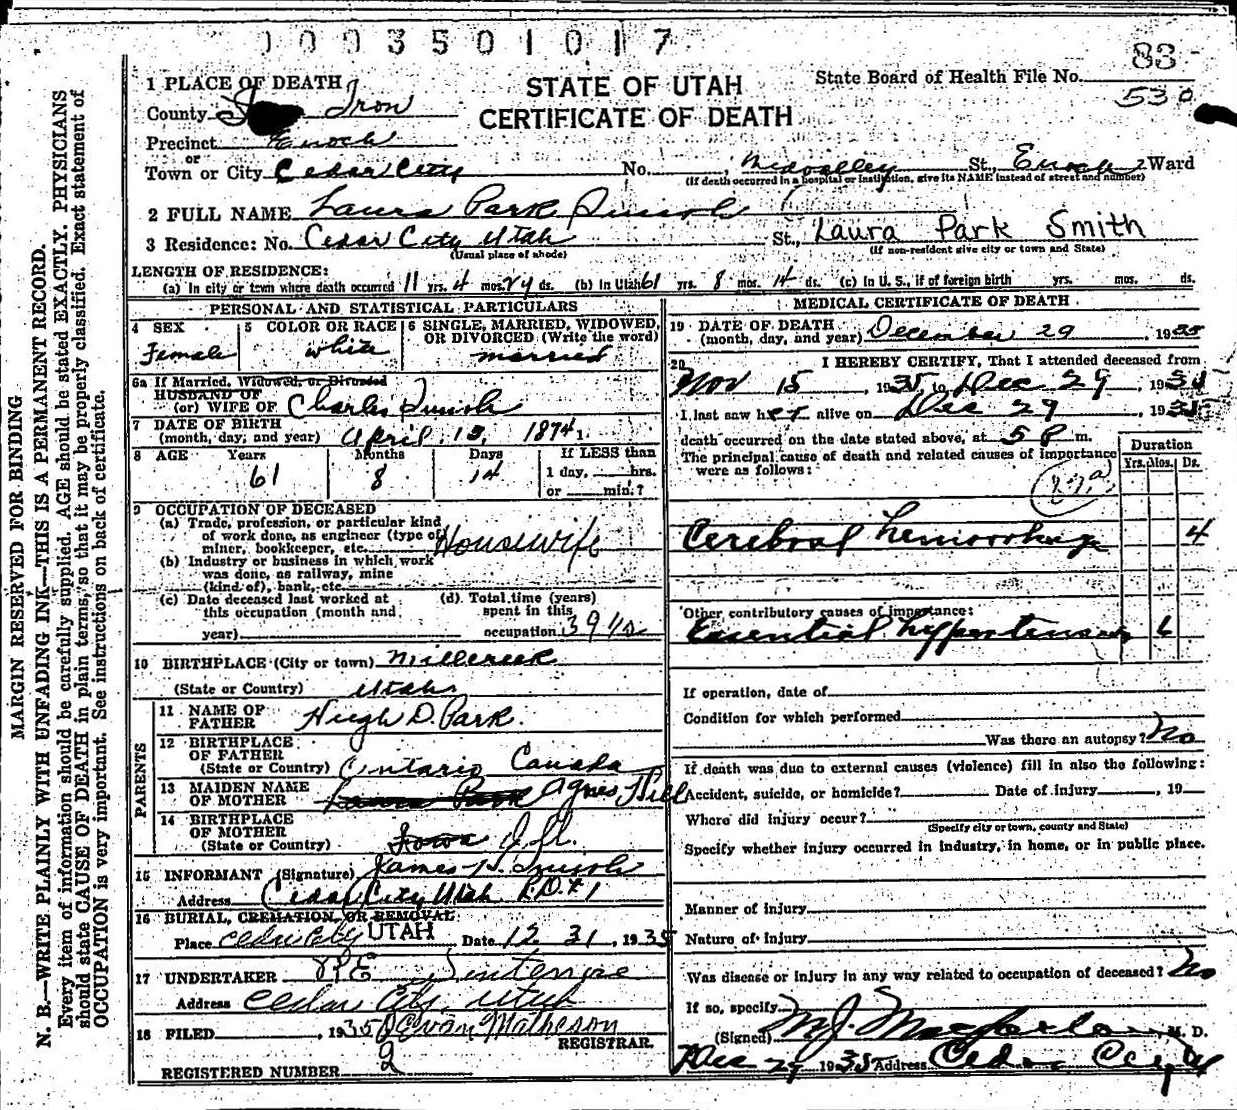 0003501017
83
1 PLACE OF DEATH
STATE OF UTAH
CERTIFICATE OF DEATH
State Board of Health File No.
530
County Iron
Precinct Enoch
or
Town or City Cedar City No. , Midvalley St., Enoch Ward
(If death occurred in a hospital or institution, give its NAME instead of street and number)
2 FULL NAME Laura Park Smith
3 Residence: No. Cedar City Utah St., Laura Park Smith
(Usual place of abode) (If non-resident give city or town and State)
LENGTH OF RESIDENCE:
(a) In city or town where death occurred 11 yrs. 4 mos. 24 ds. (b) In Utah 61 yrs. 8 mos. 14 ds. (c) In U. S., if of foreign birth yrs. mos. ds.
PERSONAL AND STATISTICAL PARTICULARS
4 SEX
Female
5 COLOR OR RACE
white
6 SINGLE, MARRIED, WIDOWED,
OR DIVORCED (Write the word)
married
6a If Married, Widowed, or Divorced
HUSBAND OF
(or) WIFE OF Charles Smith
7 DATE OF BIRTH
(month, day, and year) April 15, 1874
8 AGE Years Months Days If LESS than
61 8 14 1 day, hrs.
or min.?
9 OCCUPATION OF DECEASED
(a) Trade, profession, or particular kind
of work done, as engineer (type of
miner, bookkeeper, etc. Housewife
(b) Industry or business in which work
was done, as railway, mine
(kind of), bank, etc.
(c) Date deceased last worked at
this occupation (month and
year)
(d) Total time (years)
spent in this
occupation 39
10 BIRTHPLACE (City or town) Millcreek
(State or Country) Utah
PARENTS
11 NAME OF
FATHER Hugh D. Park.
12 BIRTHPLACE
OF FATHER
(State or Country) Ontario Canada
13 MAIDEN NAME
OF MOTHER Laura Park Agnes Hill
14 BIRTHPLACE
OF MOTHER
(State or Country) Iowa Ill.
15 INFORMANT (Signature) James H. Smith
Address Cedar City Utah R.D.#1
16 BURIAL, CREMATION, OR REMOVAL
Place Cedar City UTAH Date 12 31, 1935
17 UNDERTAKER
Address Cedar City Utah
18 FILED , 1935 Evan Matheson
REGISTRAR.
REGISTERED NUMBER 2
MEDICAL CERTIFICATE OF DEATH
19 DATE OF DEATH
(month, day, and year) December 29, 1935
20 I HEREBY CERTIFY, That I attended deceased from
Nov 15, 1935 to Dec 29, 1935
I last saw her alive on Dec 29, 1935
death occurred on the date stated above, at 5 P m.
The principal cause of death and related causes of importance
were as follows:
Duration
Yrs. Mos. Ds.
Cerebral hemorrhage 4
Other contributory causes of importance:
Essential hypertension 6
If operation, date of
Condition for which performed
Was there an autopsy? No
If death was due to external causes (violence) fill in also the following:
Accident, suicide, or homicide? Date of injury , 19
Where did injury occur?
(Specify city or town, county and State)
Specify whether injury occurred in industry, in home, or in public place.
Manner of injury
Nature of injury
Was disease or injury in any way related to occupation of deceased? No
If so, specify
(Signed) M.J. Macfarlane, M. D.
Dec 29 1935 Address Cedar City U
MARGIN RESERVED FOR BINDING
N. B.—WRITE PLAINLY WITH UNFADING INK—THIS IS A PERMANENT RECORD.
Every item of information should be carefully supplied. AGE should be stated EXACTLY. PHYSICIANS
should state CAUSE OF DEATH in plain terms, so that it may be properly classified. Exact statement of
OCCUPATION is very important. See instructions on back of certificate.